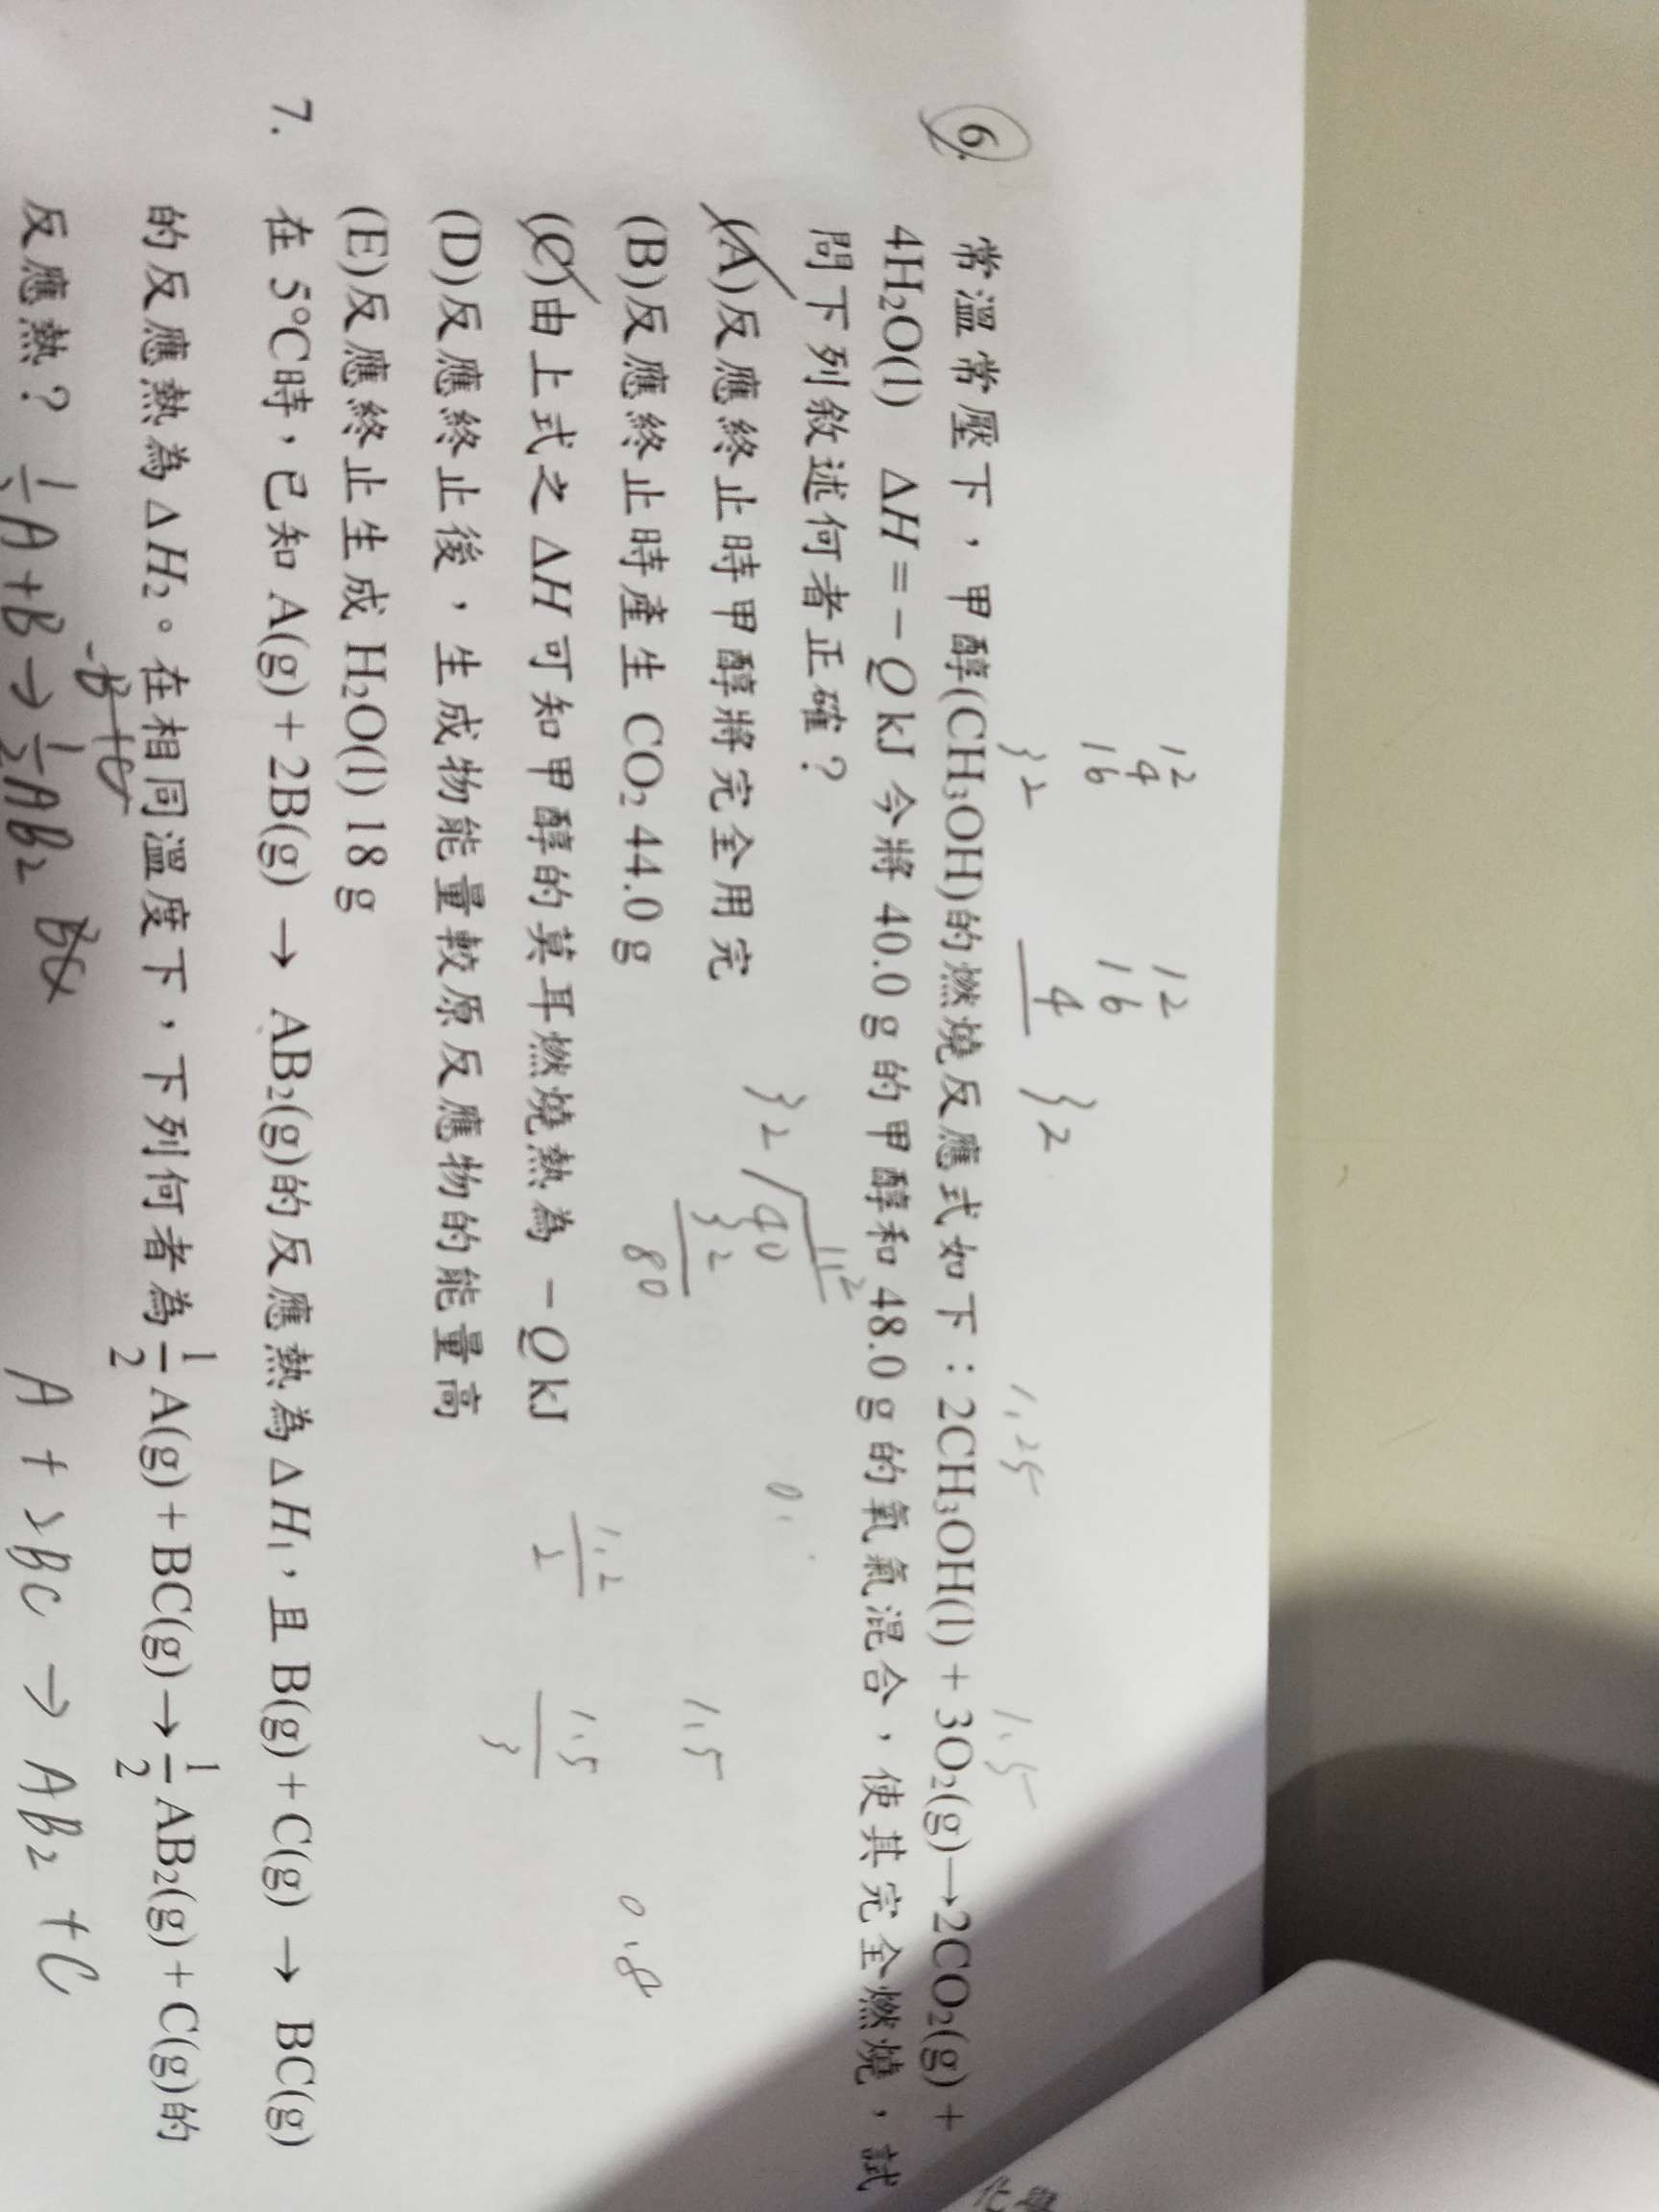 12
4
16
32
12
16
4
32
1.25
1.5
6. 常溫常壓下，甲醇(CH₃OH)的燃燒反應式如下：2CH₃OH(l) + 3O₂(g)→2CO₂(g) +
4H₂O(l) ΔH = −Q kJ 今將 40.0 g 的甲醇和 48.0 g 的氧氣混合，使其完全燃燒，試
問下列敘述何者正確？
(A)反應終止時甲醇將完全用完
(B)反應終止時產生 CO₂ 44.0 g
(C)由上式之 ΔH 可知甲醇的莫耳燃燒熱為 −Q kJ
(D)反應終止後，生成物能量較原反應物的能量高
(E)反應終止生成 H₂O(l) 18 g
32
40
32
80
0.
1.2
2
1.5
1.5
3
0.8
7. 在 5°C時，已知 A(g) + 2B(g) → AB₂(g)的反應熱為 ΔH₁，且 B(g) + C(g) → BC(g)
的反應熱為 ΔH₂。在相同溫度下，下列何者為 1/2 A(g) + BC(g)→ 1/2 AB₂(g) + C(g)的
反應熱？
A+B → 1/2 AB₂
A + 2BC → AB₂ + C
化學